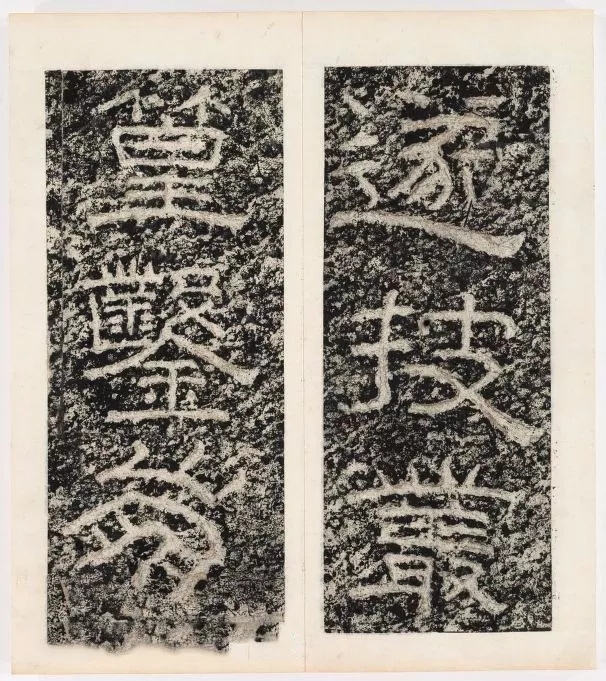 遂披叢
篁鑿